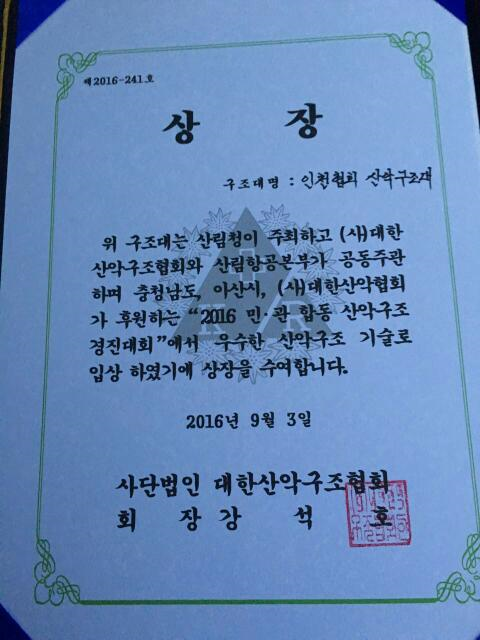 제2016-241호
상 장
구조대명 : 인천협회 산악구조대
위 구조대는 산림청이 주최하고 (사)대한
산악구조협회와 산림항공본부가 공동주관
하며 충청남도, 아산시, (사)대한산악협회
가 후원하는 “2016 민·관 합동 산악구조
경진대회”에서 우수한 산악구조 기술로
입상 하였기에 상장을 수여합니다.
2016년 9월 3일
사단법인 대한산악구조협회
회 장 강 석 호